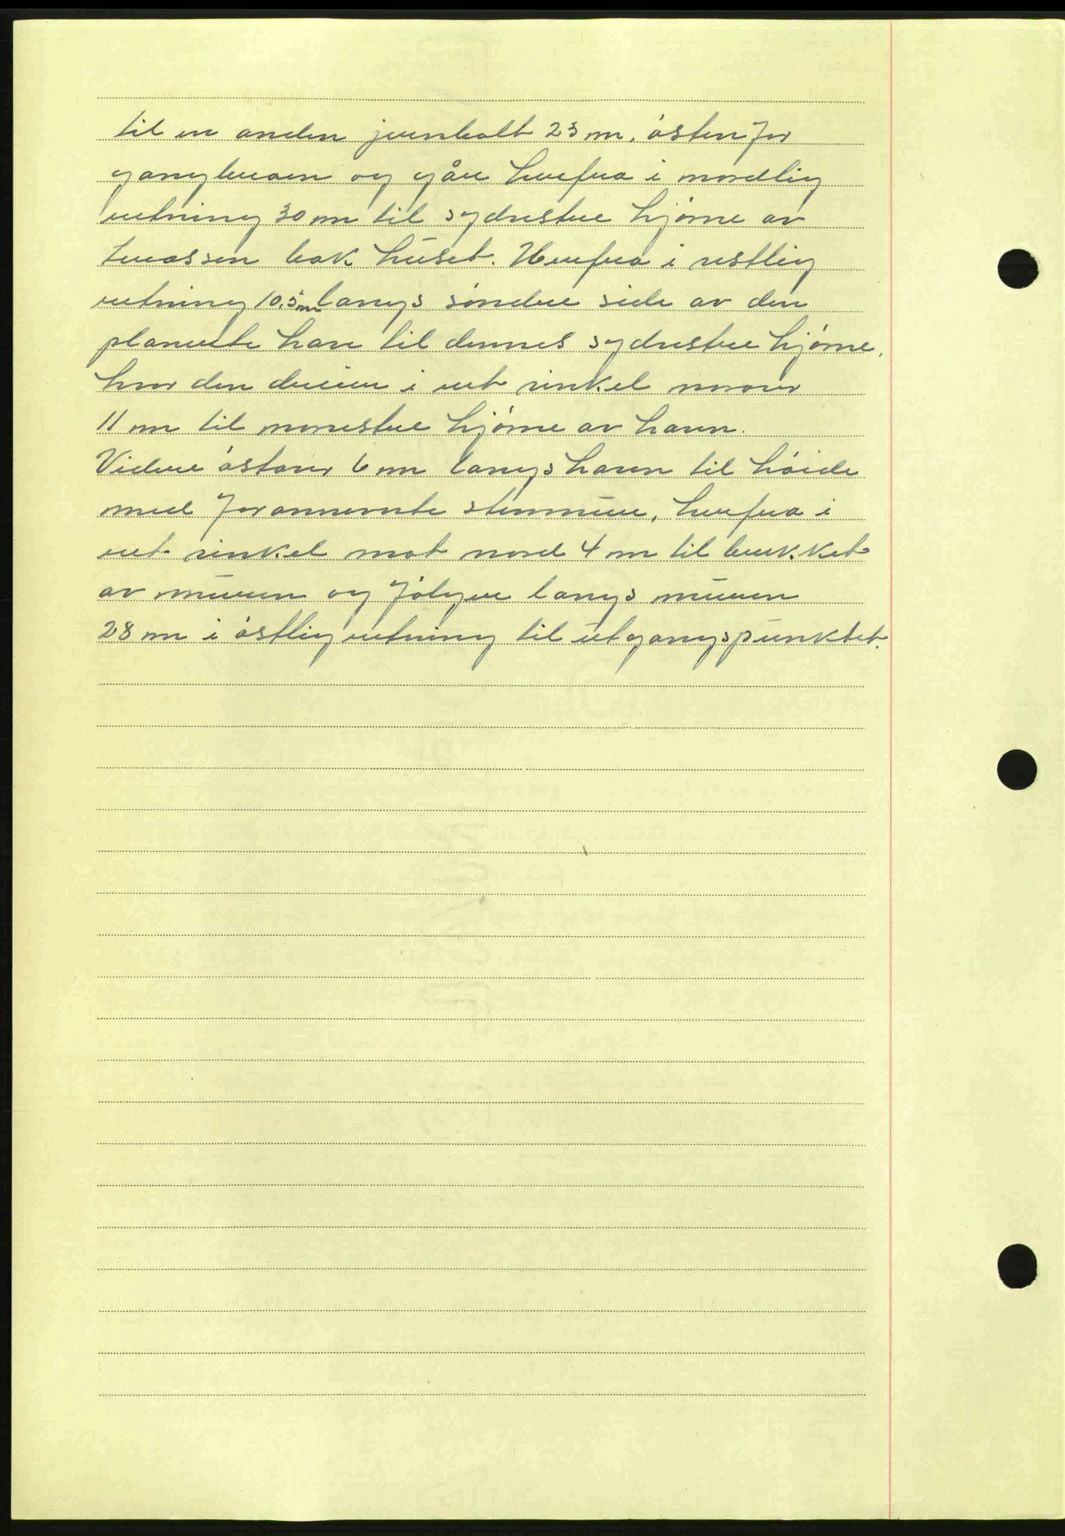 til en anden jernbolt 23 m. østen for
gangbroen og går herfra i nordlig
retning 30 m til sydvestre hjørne av
terassen bak huset. Herfra i vestlig
retning 10,5 m langs søndre side av den
planerte have til dennes sydvestre hjørne,
hvor den dreier i ret vinkel nordover
11 m til nordvestre hjørne av haven.
Videre østover 6 m langs haven til høide
med forannevnte stenmur, herfra i
ret vinkel mot nord 4 m til brekket
av muren og følger langs muren
28 m i østlig retning til utgangspunktet.